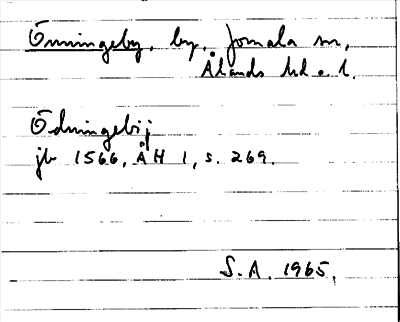 Önningeby, by, Jomala sn,
Ålands hd o. l.
Ödningebij
jb 1566, ÅH 1, s. 269.
S.A. 1965.